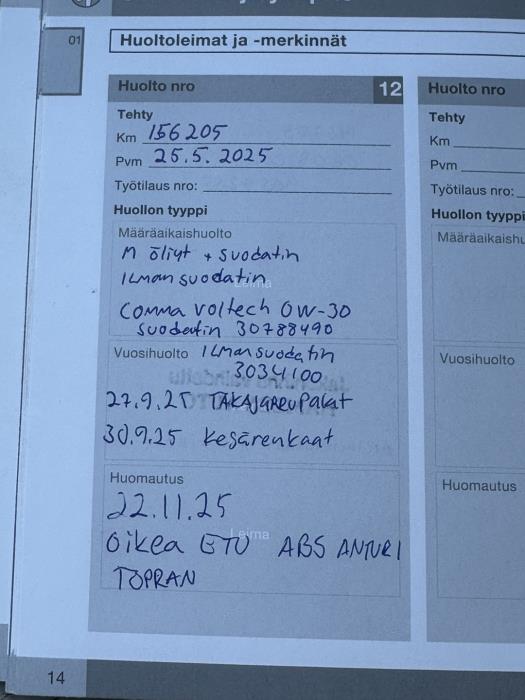 01
Huoltoleimat ja -merkinnät
Huolto nro 12
Tehty
Km 156205
Pvm 25.5.2025
Työtilaus nro:
Huollon tyyppi
Määräaikaishuolto
M öljyt + suodatin
Ilmansuodatin
Leima
Comma Voltech 0W-30
suodatin 30788490
Vuosihuolto Ilmansuodatin
3034100
27.9.25 TAKAJARRUPALAT
30.9.25 Kesärenkaat
Huomautus
22.11.25
Leima
Oikea ETU ABS ANTURI
TOPRAN
14
Huolto nro
Tehty
Km
Pvm
Työtilaus nro:
Huollon tyyppi
Määräaikaishu
Vuosihuolto
Huomautus